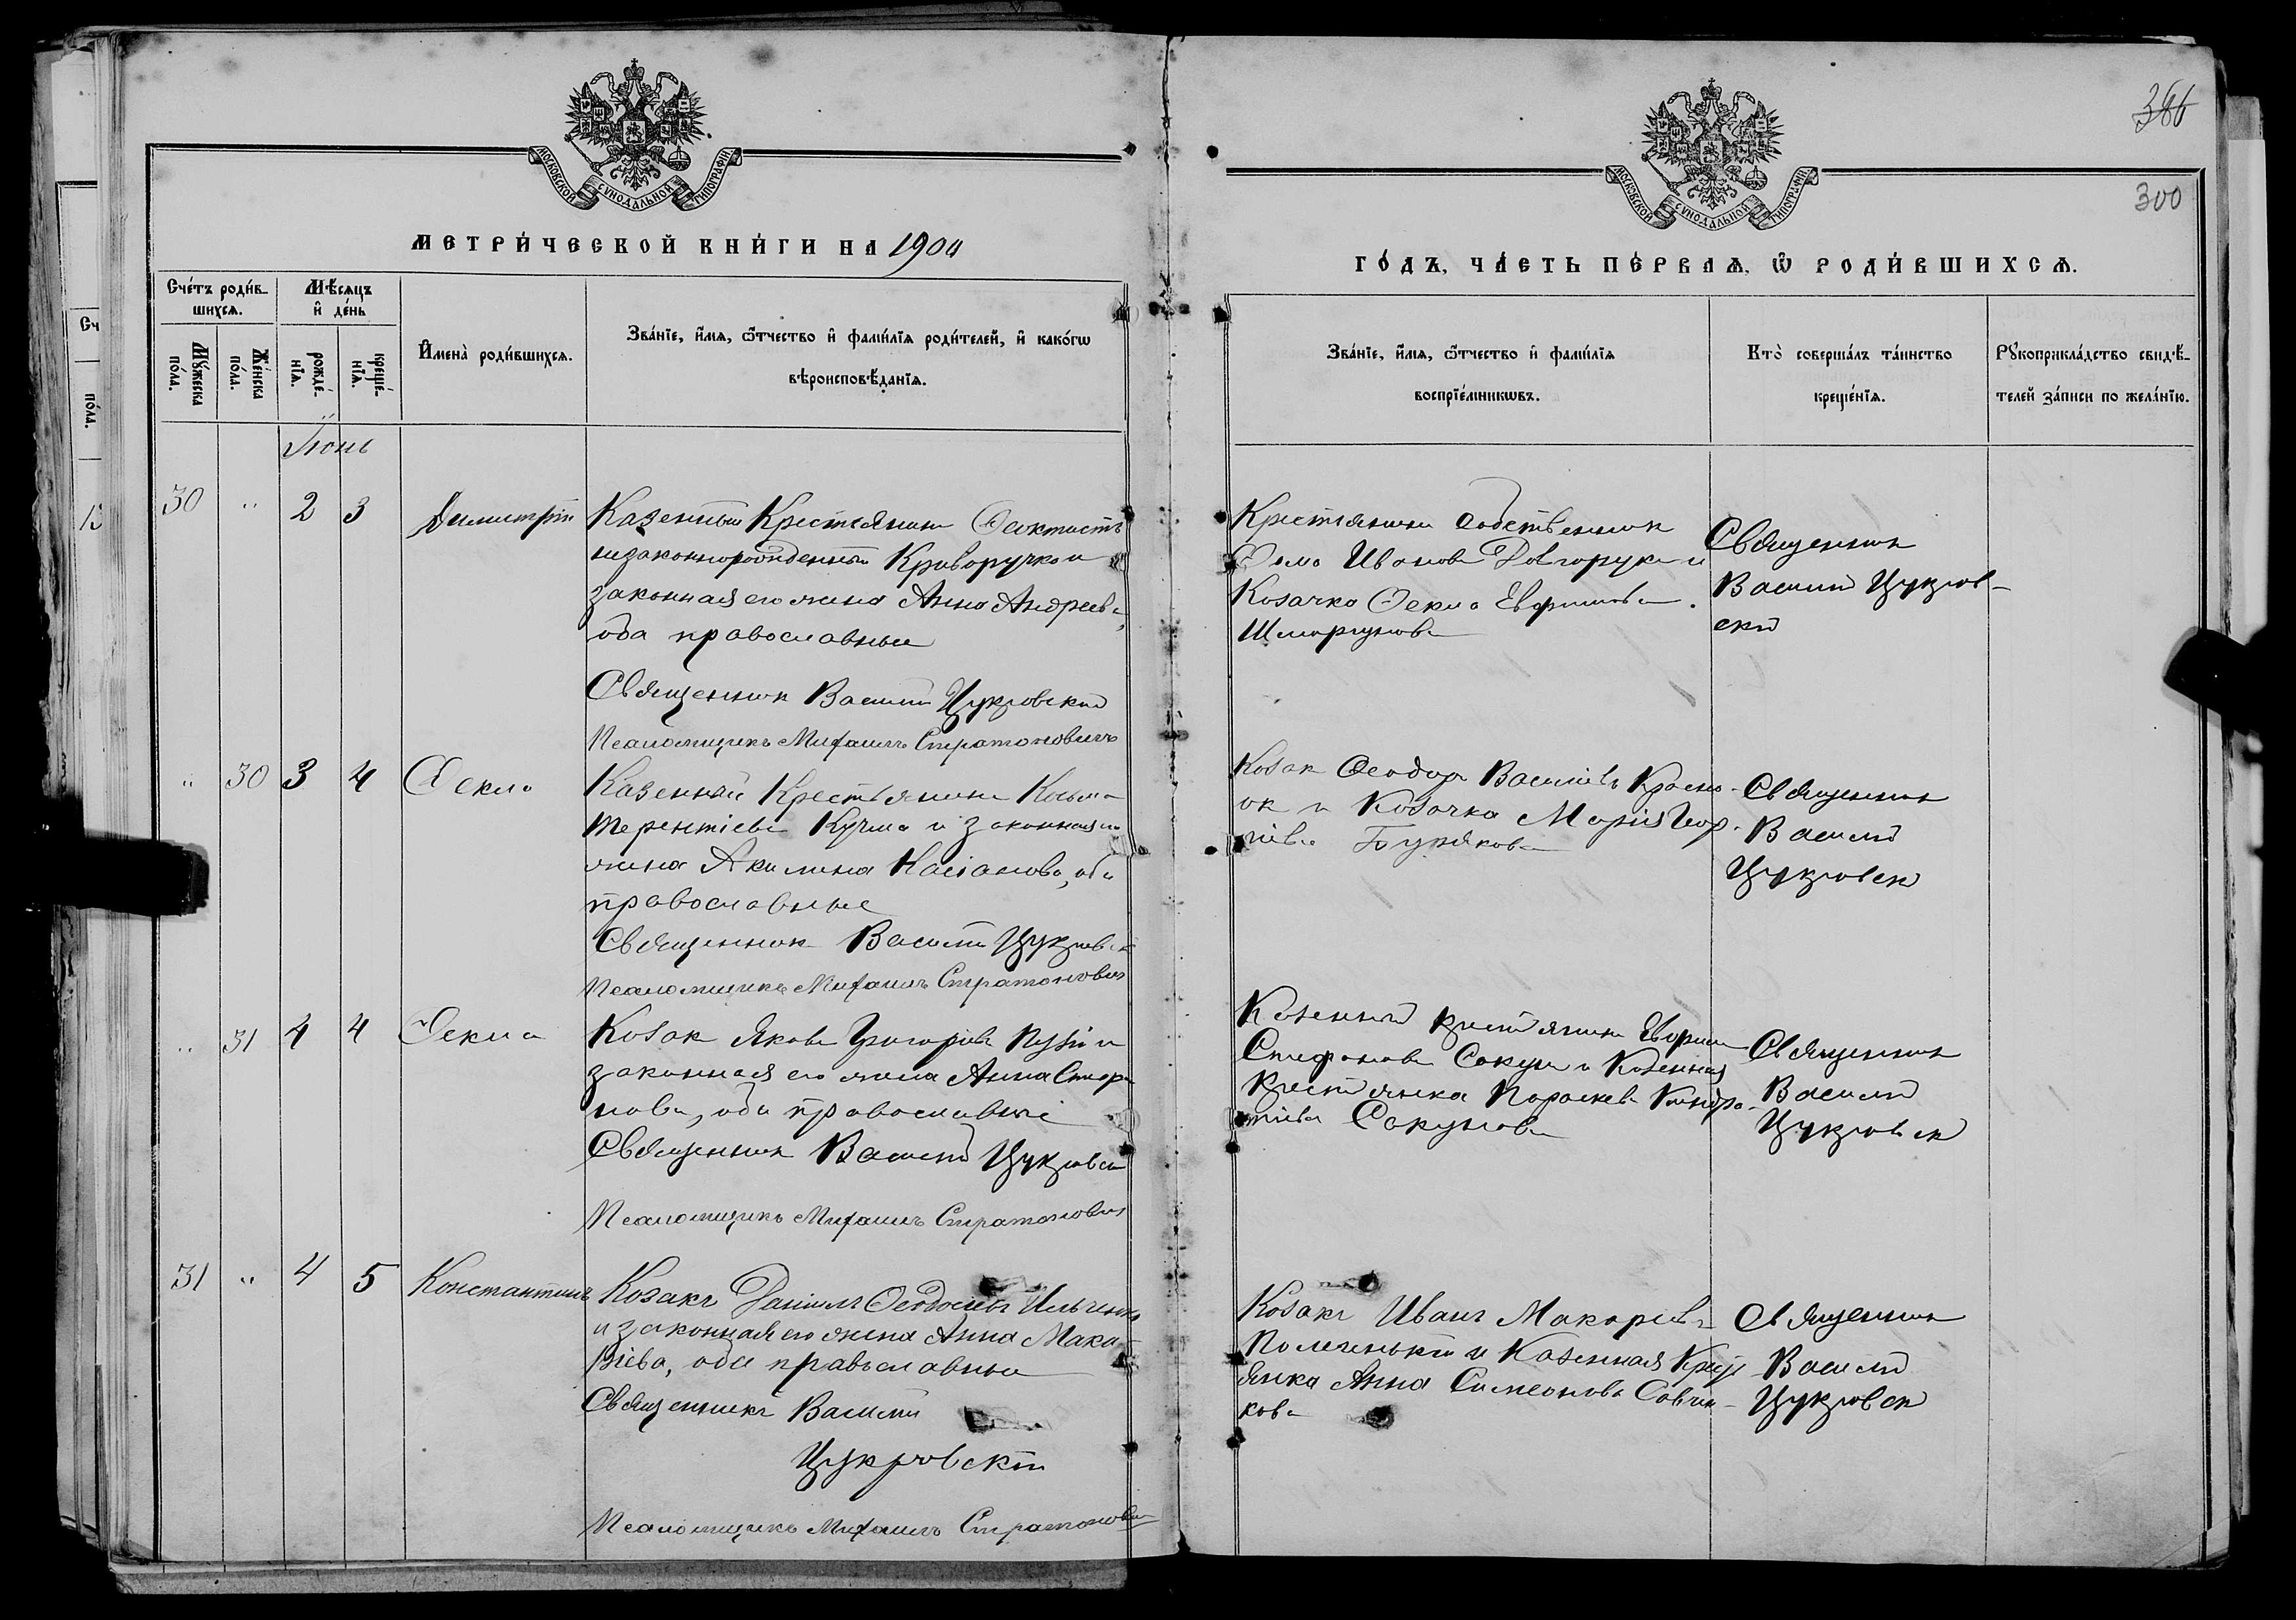 МОСКОВСКОЙ СѴНОДАЛЬНОЙ ТИПОГРАФІИ.
МЕТРИ́ЧЕСКОЙ КНИ́ГИ НА 1904
Сче́тъ роди́в-
шихсѧ.
Мꙋ́жеска
по́ла.
Же́нска
по́ла.
Мѣ́сѧцъ
и҆ де́нь
рожде́-
нїѧ.
креще́-
нїѧ.
И҆мена̀ роди́вшихсѧ.
Зва́нїе, и҆́мѧ, ѻ҆́тчество и҆ фамѝлїѧ роди́телей, и҆ како́гѡ
вѣроисповѣ́данїѧ.
Іюнь
30 " 2 3 Димитрій
Казенный Крестьянинъ Ѳеоктистъ
незаконнорожденный Криворучко и
законная его жена Анна Андреева,
оба православные
Священник Василій Цукровский
Псаломщикъ Михаилъ Стратоновичъ
" 30 3 4 Ѳекла
Казенный Крестьянин Косьма
Терентіевъ Кучма и законная его
жена Акилина Касіанова, оба
православные
Священник Василій Цукровск
Псаломщикъ Михаилъ Стратонович
" 31 4 4 Ѳекла
Козак Яков Григоріев и
законная его жена Анна Стефа
нова, оба православные
Священник Василій Цукровск
Псаломщикъ Михаилъ Стратонович
31 " 4 5 Константинъ
Козакъ Даніилъ Ѳеодосіевъ Ильченко
и законная его жена Анна Мака
ріева, оба православные
Священникъ Василій
Цукровскій
Псаломщикъ Михаилъ Стратонович
366
300
МОСКОВСКОЙ СѴНОДАЛЬНОЙ ТИПОГРАФІИ.
ГО́ДЪ, ЧА́СТЬ ПЕ́РВАѦ, Ѡ҆ РОДИ́ВШИХСѦ.
Зва́нїе, и҆́мѧ, ѻ҆́тчество и҆ фамѝлїѧ
воспрїе́мникѡвъ.
Кто̀ соверша́лъ та́инство
креще́нїѧ.
Рꙋкоприкла́дство свидѣ́-
телей за́писи по жела́нїю.
Крестьянин собственник
Ѳома Иванов Довгорук и
Козачка Ѳекла Евфимова
Шморгунова
Священник
Василій Цукров-
скій
Козак Ѳеодор Васильев Красно-
ок и Козачка Марія Геор-
гіева Бурякова
Священник
Василій
Цукровск
Казенный крестьянин Евфим
Стефанов Сокун и Казенная
крестьянка Параскева Кондра-
тіева Сокунова
Священник
Василій
Цукровск
Козакъ Иванъ Макаріевъ
и Казенная Крест
янка Анна Симеонова Савчен-
кова
Священник
Василій
Цукровск